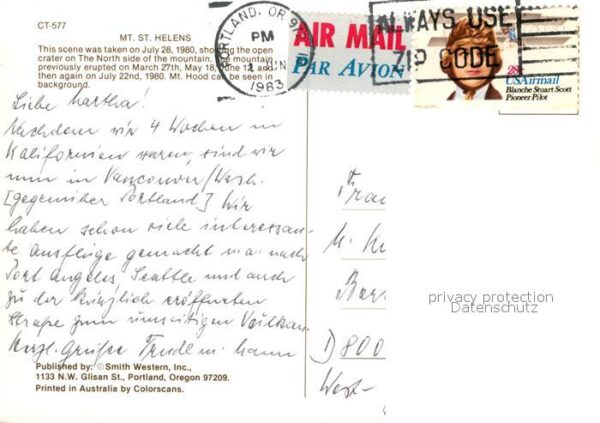 CT-577
MT. ST. HELENS
This scene was taken on July 28, 1980, showing the open
crater on The North side of the mountain. The mountain
previously erupted on March 27th, May 18, June 12, and
then again on July 22nd, 1980. Mt. Hood can be seen in
background.
PORTLAND, OR 9
PM
JUN
1983
AIR MAIL
PAR AVION
ALWAYS USE
ZIP CODE
28
USAirmail
Blanche Stuart Scott
Pioneer Pilot
Liebe Martha!
Nachdem wir 4 Wochen in
Kalifornien waren, sind wir
nun in Vancouver/Wash.
[gegenüber Portland.] Wir
haben schon viele interessan-
te Ausflüge gemacht u.a. nach
Port Angeles, Seattle und auch
zu der kürzlich eröffneten
Straße zum umseitigen Vulkan.
Herzl. Grüße Trudl m. Mann
Frau
M. K
D 800
West-
privacy protection
Datenschutz
Published by: ©Smith Western, Inc.,
1133 N.W. Glisan St., Portland, Oregon 97209.
Printed in Australia by Colorscans.